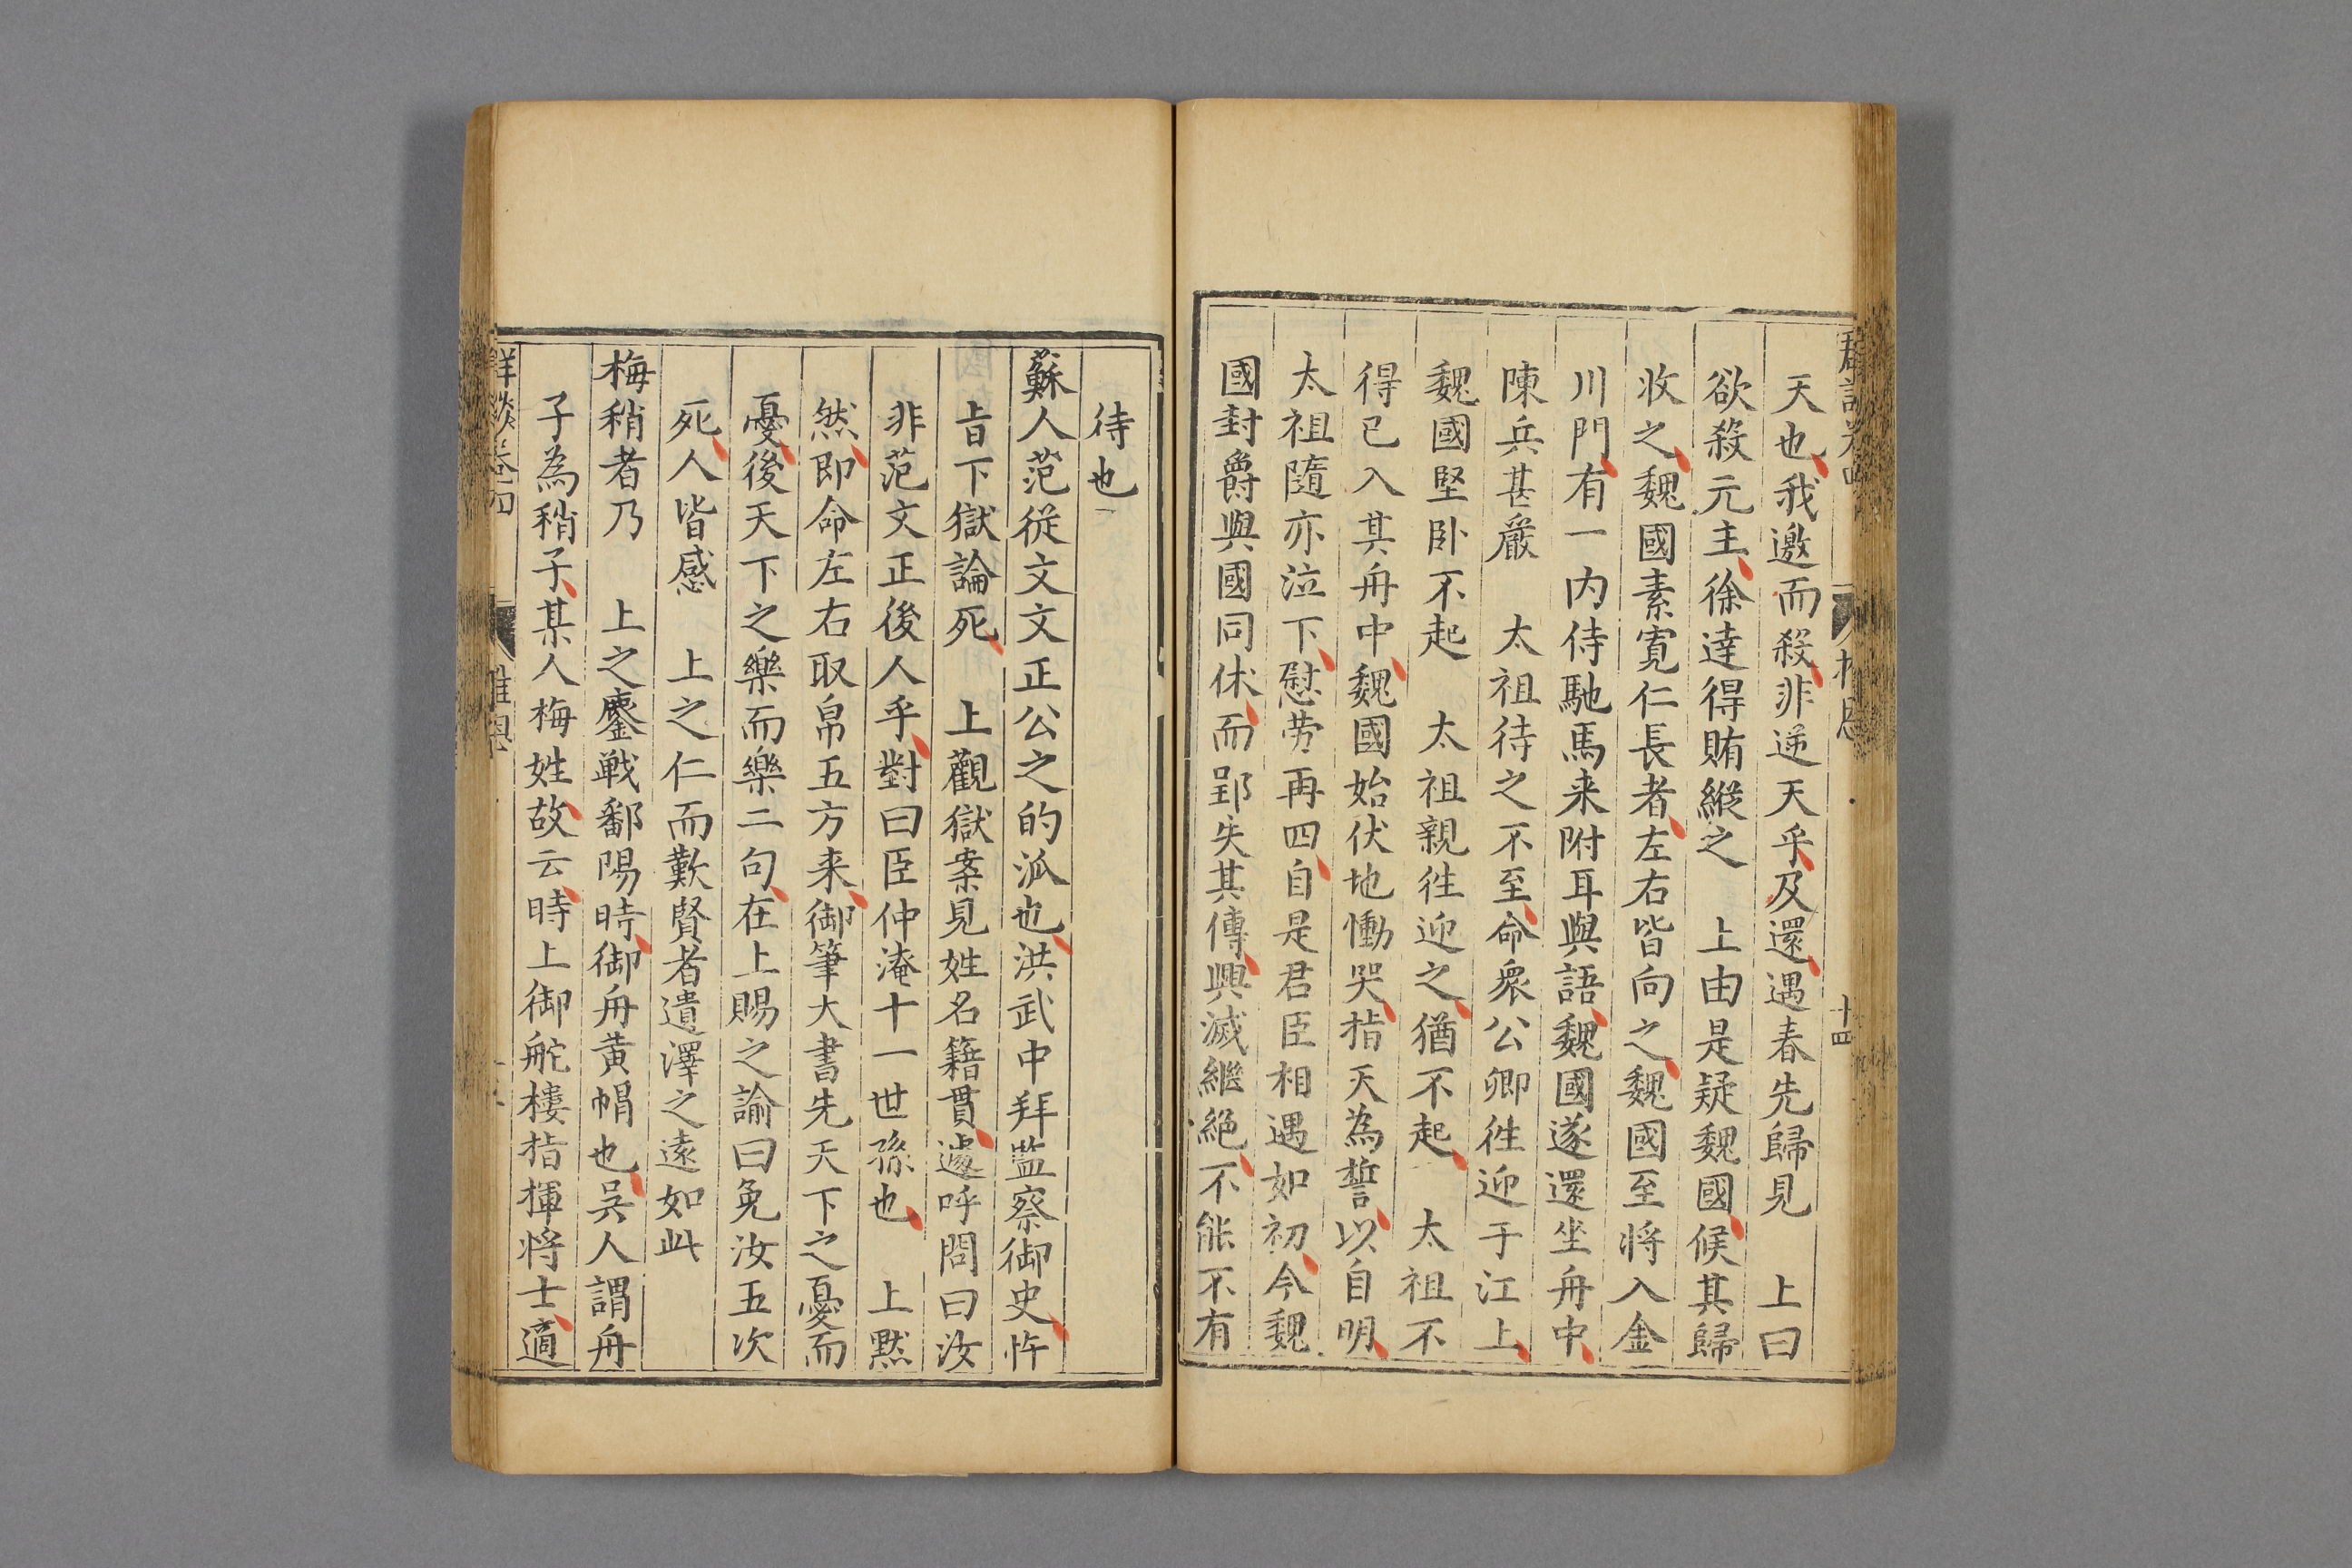 天也我邀而殺非逆天乎及還遇春先歸見　上曰
欲殺元主徐達得賄縱之　上由是疑魏國候其歸
收之魏國素寬仁長者左右皆向之魏國至將入金
川門有一内侍馳馬来附耳與語魏國遂還坐舟中
陳兵甚嚴　太祖待之不至命衆公卿徃迎于江上
魏國堅卧不起　太祖親徃迎之猶不起　太祖不
得已入其舟中魏國始伏地慟哭指天為誓以自明
太祖隨亦泣下慰劳再四自是君臣相遇如初今魏
國封爵與國同休而郢失其傳興滅継絶不能不有
待也
蘇人范從文文正公之的泒也洪武中拜監察御史忤
旨下獄論死　上觀獄案見姓名籍貫遽呼問曰汝
非范文正後人乎對曰臣仲淹十一世孫也　上黙
然即命左右取帛五方来御筆大書先天下之憂而
憂後天下之樂而樂二句在上賜之諭曰免汝五次
死人皆感　上之仁而歎賢者遺澤之遠如此
梅稍者乃　上之鏖戦鄱陽時御舟黄帽也吳人謂舟
子為稍子某人梅姓故云時上御舵樓指揮将士適